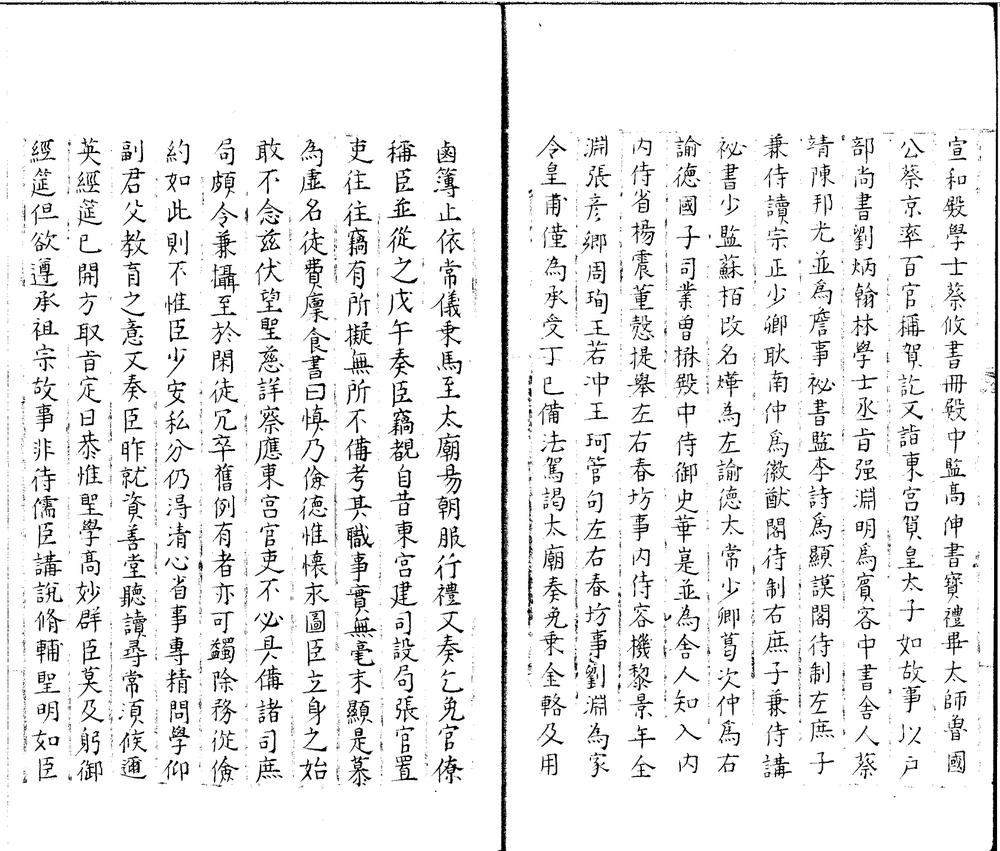 宣和殿學士蔡攸書冊殿中監高伸書寶禮畢太師魯國
公蔡京率百官稱賀訖又詣東宮賀皇太子如故事以戶
部尚書劉炳翰林學士丞旨强淵明爲賓客中書舍人蔡
靖陳邦光並爲詹事祕書監李詩爲顯謨閣待制左庶子
兼侍讀宗正少卿耿南仲爲徽猷閣待制右庶子兼侍講
祕書少監蘇栢改名燁為左諭德太常少卿葛次仲爲右
諭德國子司業曽楙殿中侍御史華嵬並為舍人知入內
內侍省楊震董愨提舉左右春坊事內侍容機黎景年全
淵張彥卿周珣王若冲王珂管句左右春坊事劉淵為家
令皇甫僅為承受丁巳備法駕謁太廟奏免乗金輅及用
鹵簿止依常儀乗馬至太廟易朝服行禮又奏乞免官僚
稱臣並從之戊午奏臣竊覩自昔東宮建司設局張官置
吏往往竊有所擬無所不備考其職事實無毫末顯是慕
為虛名徒費廩食書曰慎乃儉德惟懷永圖臣立身之始
敢不念兹伏望聖慈詳察應東宮官吏不必具備諸司庶
局頗令兼攝至於閑徒冗卒舊例有者亦可蠲除務從儉
約如此則不惟臣少安私分仍淂清心省事專精問學仰
副君父教育之意又奏臣昨就資善堂聽讀尋常須候邇
英經筵已開方取旨定日恭惟聖學髙妙群臣莫及躬御
經筵但欲遵承祖宗故事非待儒臣講說脩輔聖明如臣